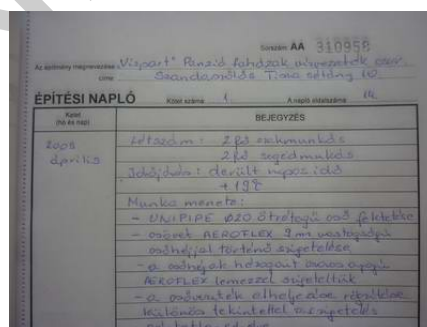 Sorszám: AA 310958
Az építmény megnevezése „Vízpart" Panzió faházak vízvezeték
címe Tisza sétány 10.
ÉPÍTÉSI NAPLÓ Kötet száma 1. A napló oldalszáma 14.
Kelet (hó és nap) BEJEGYZÉS
2008 április
Létszám: 2 fő szakmunkás
2 fő segédmunkás
Időjárás: derült napos idő
+19°C
Munka menete:
- UNIPIPE Ø20 ötrétegű cső fektetése
- csövet AEROFLEX 9 mm vastagságú
csőhéjjal történő szigetelése
- a csőhéjak
AEROFLEX lemezzel szigeteltük
- a csővezeték elhelyezése rögzítése
különös tekintettel